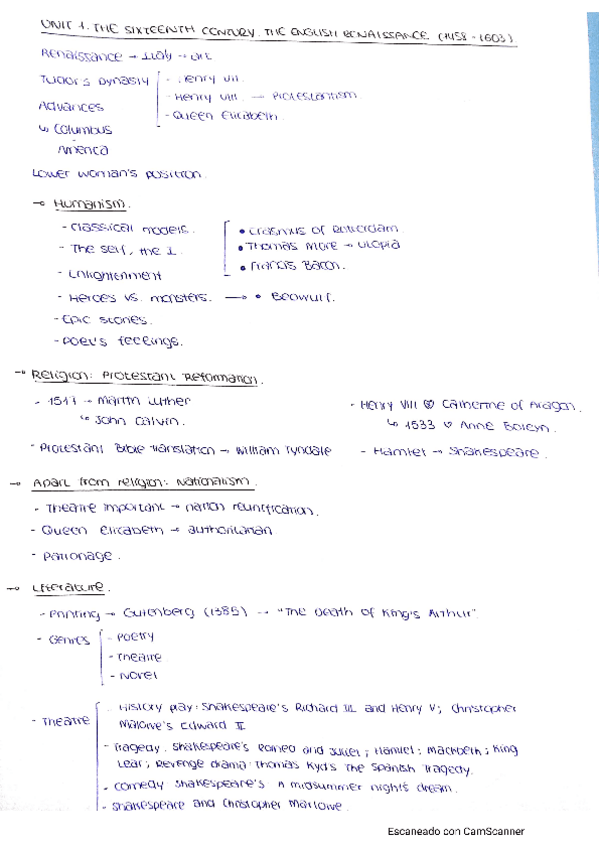 UNIT 1. THE SIXTEENTH CENTURY. THE ENGLISH RENAISSANCE. (1458 - 1603)
Renaissance → Italy → Art
Tudor's Dynasty - Henry VII.
- Henry VIII. → Protestantism.
Advances
- Queen Elizabeth.
↳ Columbus
America
Lower woman's position.
→ Humanism.
- Classical models. • Erasmus of Rotterdam
- The self, the I. • Thomas More → Utopia
- Enlightenment • Francis Bacon.
- Heroes vs. monsters. → • Beowulf.
- Epic stories.
- Poet's feelings.
→ Religion: Protestant Reformation.
- 1517 → Martin Luther - Henry VIII Catherine of Aragon.
↳ John Calvin. ↳ 1533 Anne Boleyn.
- Protestant Bible translation → William Tyndale - Hamlet → Shakespeare.
→ Apart from religion: Nationalism.
- Theatre important → nation reunification.
- Queen Elizabeth → authoritarian
- Patronage.
→ Literature.
- Printing → Gutenberg (1385) → "The Death of King's Arthur".
- Genres - Poetry
- Theatre
- Novel
- Theatre - History play: Shakespeare's Richard III and Henry V; Christopher
Malowe's Edward II
- Tragedy. Shakespeare's Romeo and Juliet; Hamlet; Macbeth; King
Lear; Revenge drama: Thomas Kyd's The Spanish Tragedy.
- Comedy Shakespeare's A midsummer night's dream.
- Shakespeare and Christopher Marlowe.
Escaneado con CamScanner